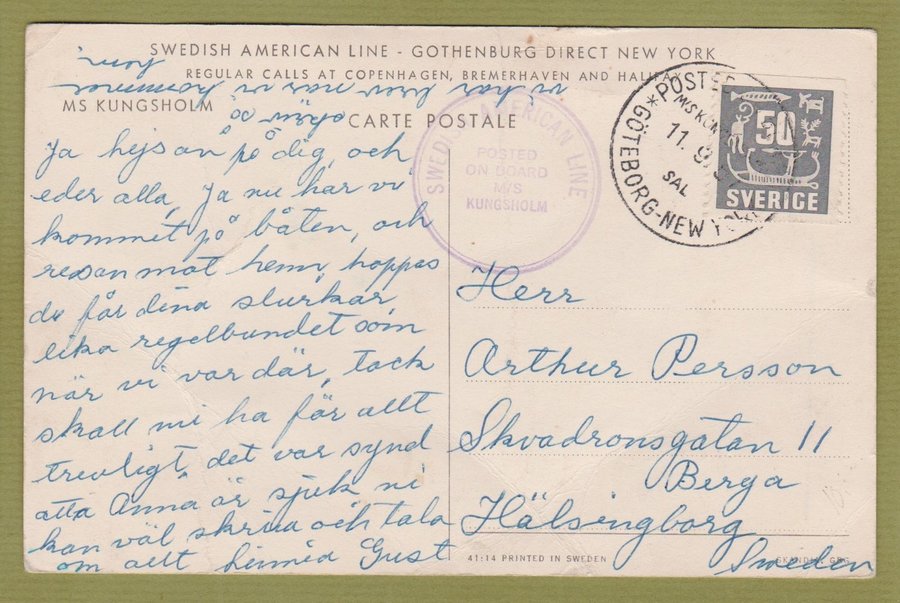 SWEDISH AMERICAN LINE - GOTHENBURG DIRECT NEW YORK
REGULAR CALLS AT COPENHAGEN, BREMERHAVEN AND HALIFAX
MS KUNGSHOLM
CARTE POSTALE
SWEDISH AMERICAN LINE
POSTED
ON BOARD
M/S
KUNGSHOLM
POSTEN
M/S KUNG
11. 9
SAL
GÖTEBORG-NEW YORK
50
SVERIGE
Ja hejsan på dig, och
eder alla, Ja nu har vi
kommet på båten, och
resan mot hem, hoppas
du får dina slurkar
lika regelbundet som
när vi var där, tack
skall ni ha för allt
trevligt, det var synd
atta Anna är sjuk ni
kan väl skriva och tala
om allt Gust
Herr
Arthur Persson
Skvadronsgatan 11
Berga
Hälsingborg
Sweden
41:14 PRINTED IN SWEDEN